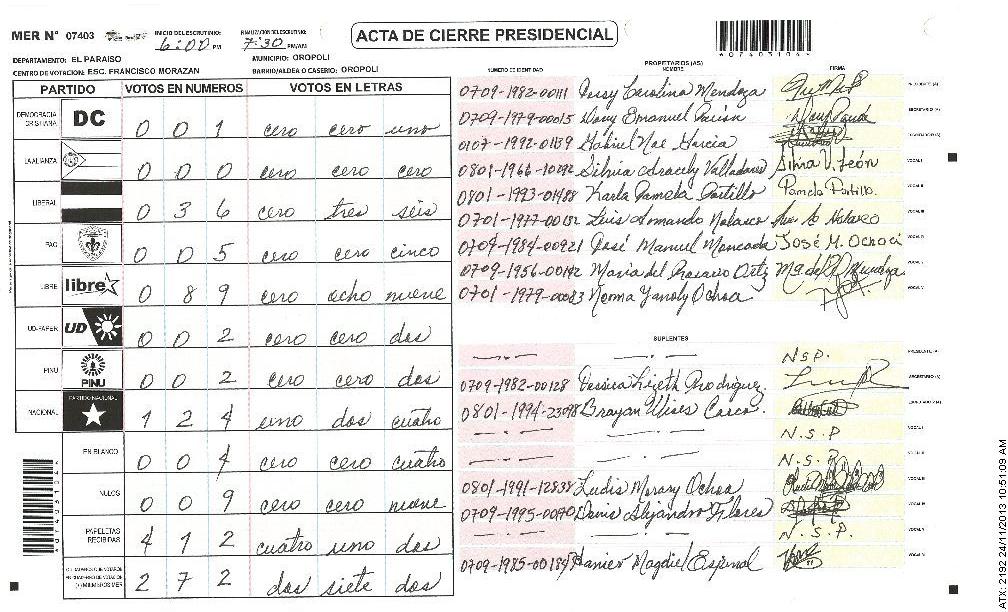 MER N° 07403 INICIO DEL ESCRUTINIO: 6:00 PM FINALIZACION DEL ESCRUTINIO: 7:30 PM/AM
ACTA DE CIERRE PRESIDENCIAL
*07403104*
DEPARTAMENTO: EL PARAISO MUNICIPIO: OROPOLI
CENTRO DE VOTACION: ESC. FRANCISCO MORAZAN BARRIO/ALDEA O CASERIO: OROPOLI
PARTIDO VOTOS EN NUMEROS VOTOS EN LETRAS
DEMOCRACIA CRISTIANA DC 0 0 1 cero cero uno
LA ALIANZA 0 0 0 cero cero cero
LIBERAL 0 3 6 cero tres seis
PAC 0 0 5 cero cero cinco
LIBRE libre 0 8 9 cero ocho nueve
UD-FAPER UD 0 0 2 cero cero dos
PINU PINU 0 0 2 cero cero dos
NACIONAL PARTIDO NACIONAL 1 2 4 uno dos cuatro
EN BLANCO 0 0 4 cero cero cuatro
NULOS 0 0 9 cero cero nueve
PAPELETAS RECIBIDAS 4 1 2 cuatro uno dos
CIUDADANOS QUE VOTARON EN CUADERNO DE VOTACION (+) MIEMBROS MER 2 7 2 dos siete dos
PROPIETARIOS (AS)
NUMERO DE IDENTIDAD NOMBRE FIRMA
0709-1982-00111 Carolina Mendoza PRESIDENTE (A)
0709-1979-00015 Dony Emanuel SECRETARIO (A)
0107-1992-01139 Gabriel Noe Garcia ESCRUTADOR (A)
0801-1966-10292 Silvia Aracely Valladares Silvia V. León VOCAL I
0801-1993-01988 Karla Pamela Portillo Pamela Portillo. VOCAL II
0701-1977-00132 Luis Armando Nolasco VOCAL III
0709-1984-00921 José Manuel Moncada José M. Ochoa
0709-1956-00192 Maria del Rosario Ortiz VOCAL V
0701-1979-00083 Norma Ochoa
SUPLENTES
N.S.P. PRESIDENTE (A)
0709-1982-00128 Lizeth Rodriguez SECRETARIO (A)
0801-1994-23098 Brayan Ulises ESCRUTADOR (A)
N.S.P VOCAL I
N.S.P VOCAL II
0801-1991-12838 Ludis Ochoa VOCAL III
0709-1995-00170 Denis Alejandro Flores VOCAL IV
N.S.P. VOCAL V
0709-1985-00189 Magdiel Espinal VOCAL VI
ATX: 2192 24/11/2013 10:51:09 AM